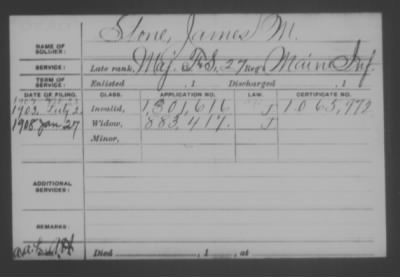 NAME OF SOLDIER: Stone, James M.
SERVICE: Late rank, Maj. F&S, 27 Reg't Maine Inf.
TERM OF SERVICE: Enlisted , 1 Discharged , 1
DATE OF FILING. CLASS. APPLICATION NO. LAW. CERTIFICATE NO.
1903, July 2 Invalid, 1,301,616 J 1.065,972
1908 Jan 27 Widow, 883,417. J
Minor,
ADDITIONAL SERVICES:
REMARKS:
Died , 1 , at